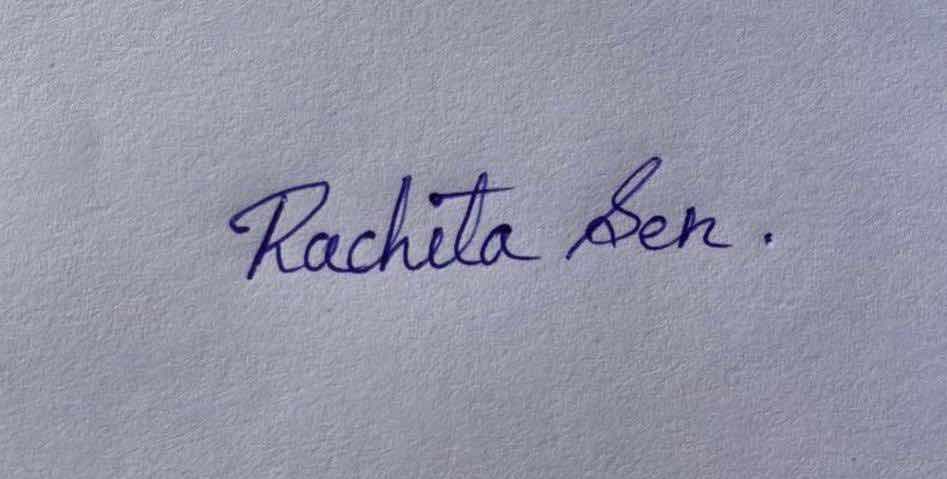 Rachita Sen.